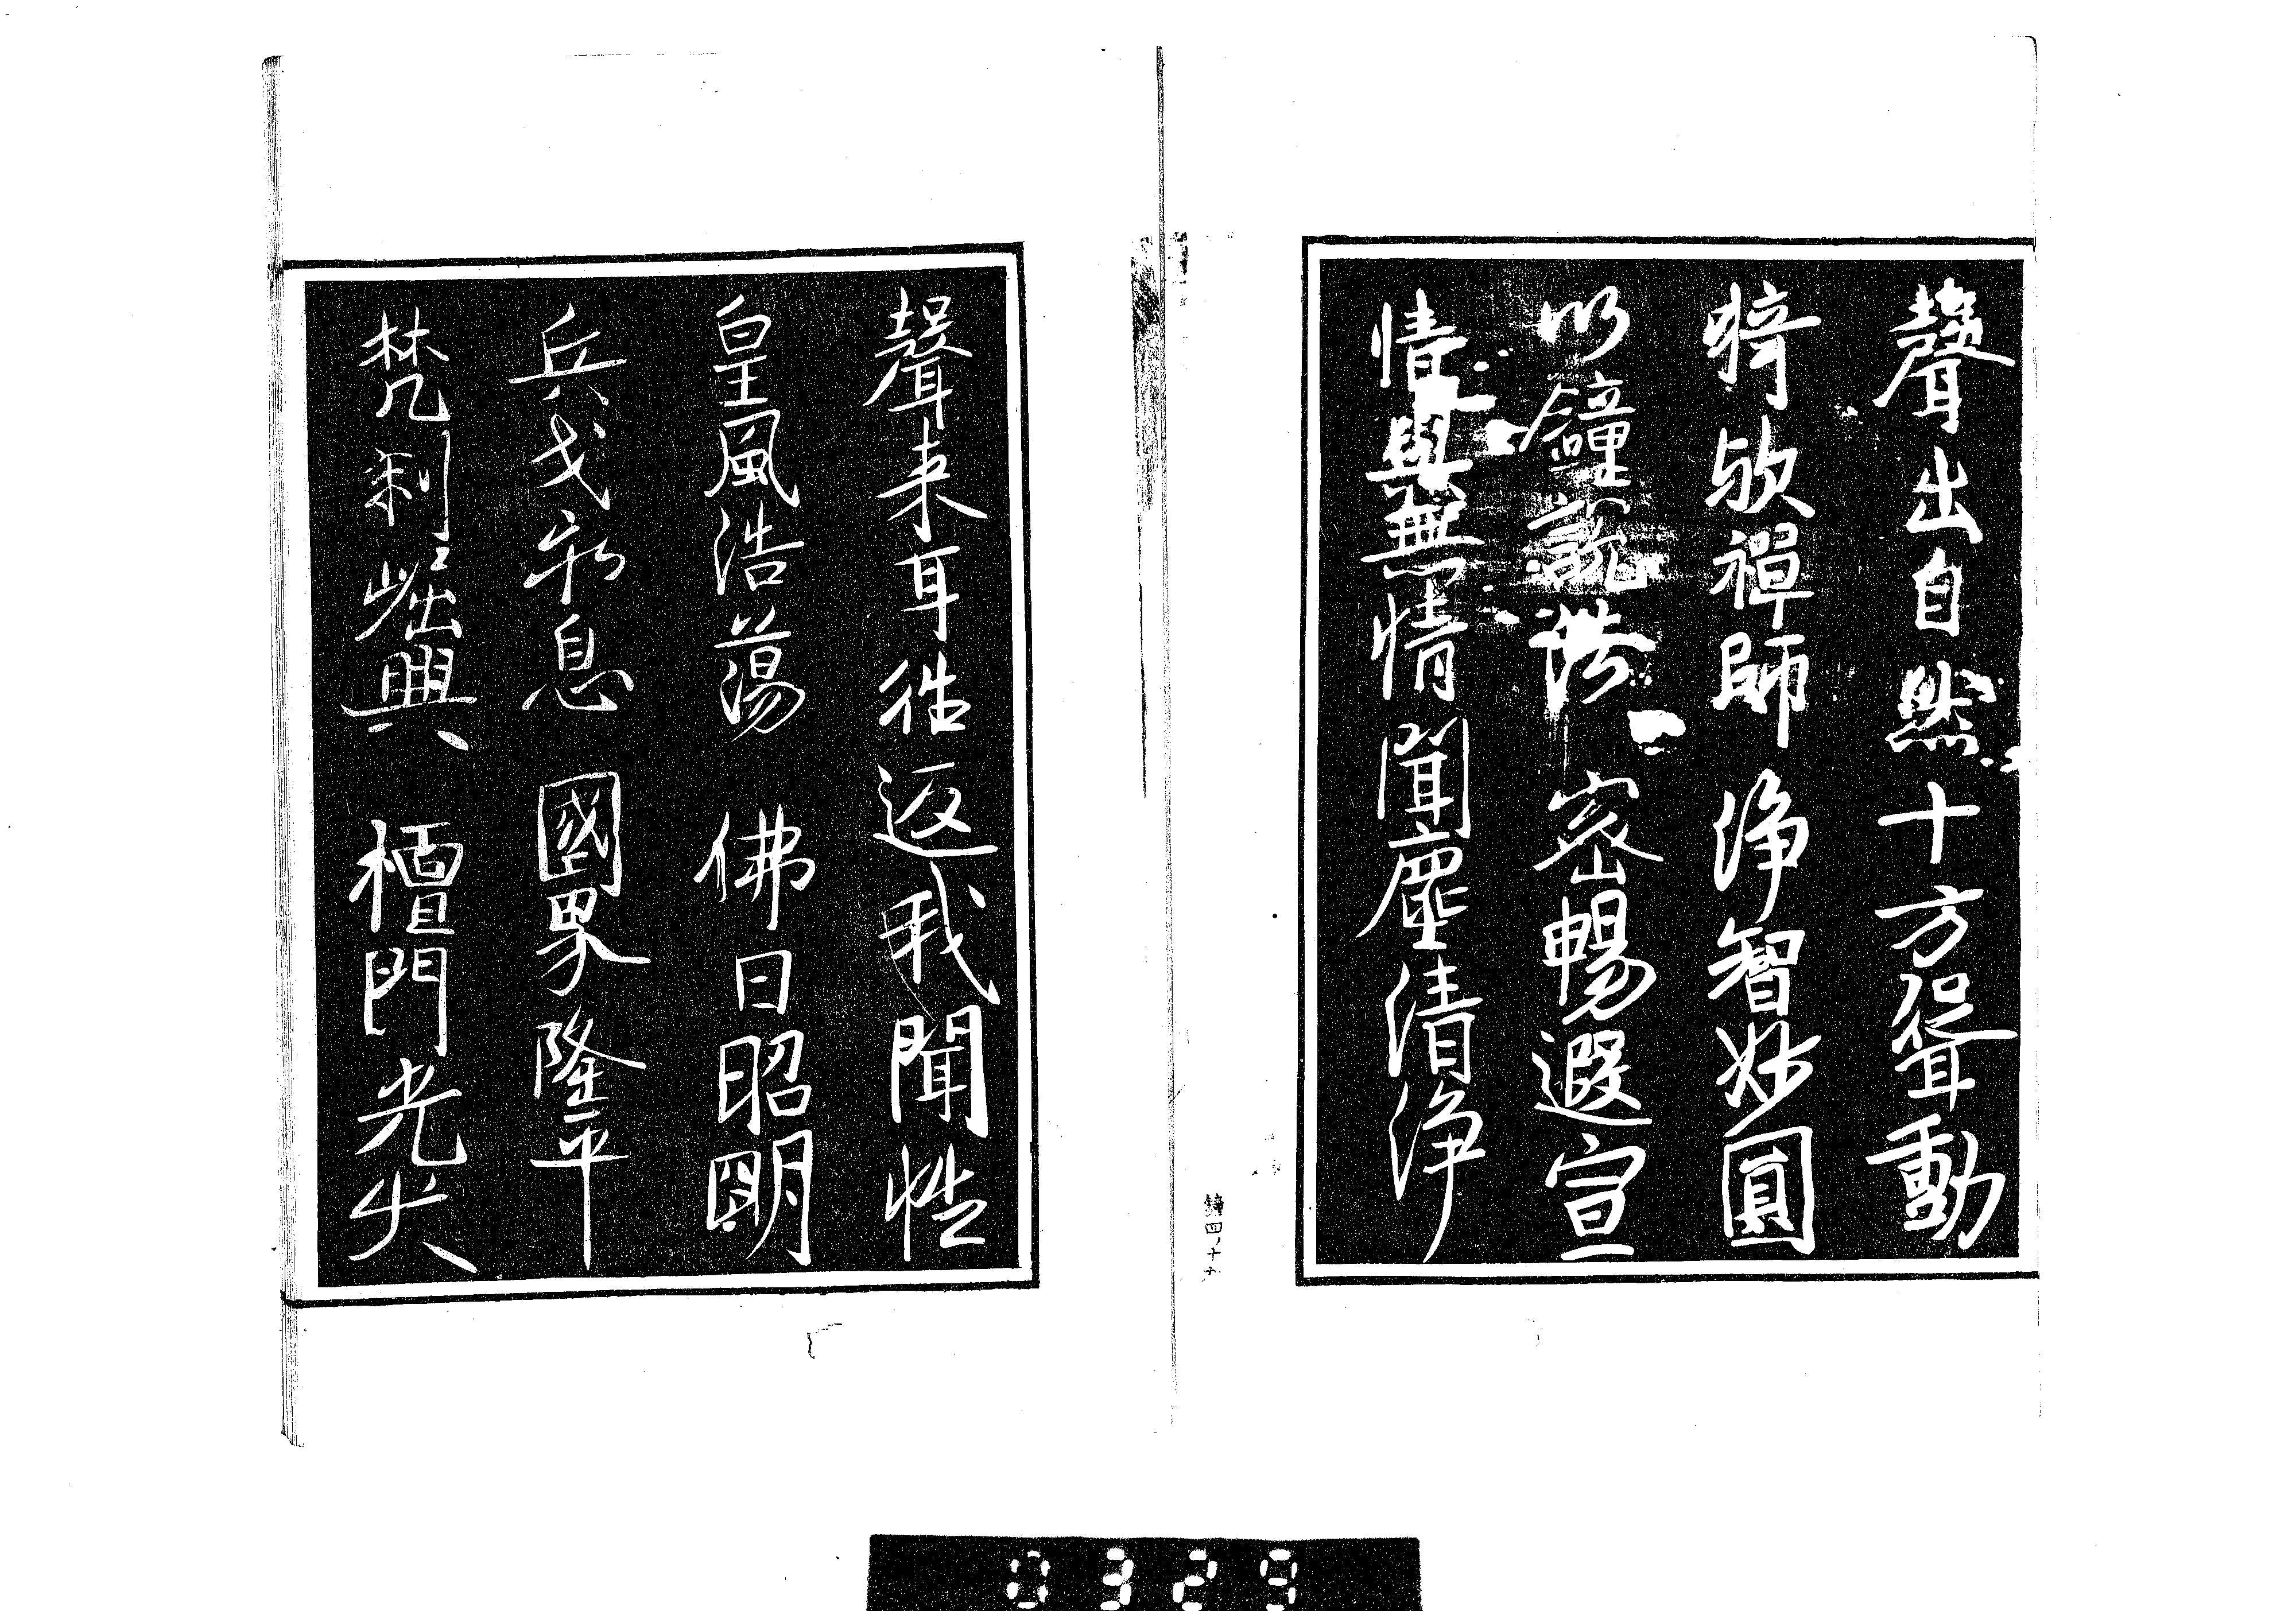 聲出自然十方聳動
猗歟禪師淨智妙圓
以鐘説法密暢遐宣
情與無情聞塵清淨
鐘四ノ十九
聲来耳徃返我聞性
皇風浩蕩佛日昭明
兵戈永息國界隆平
梵刹崛興檀門光大
0329